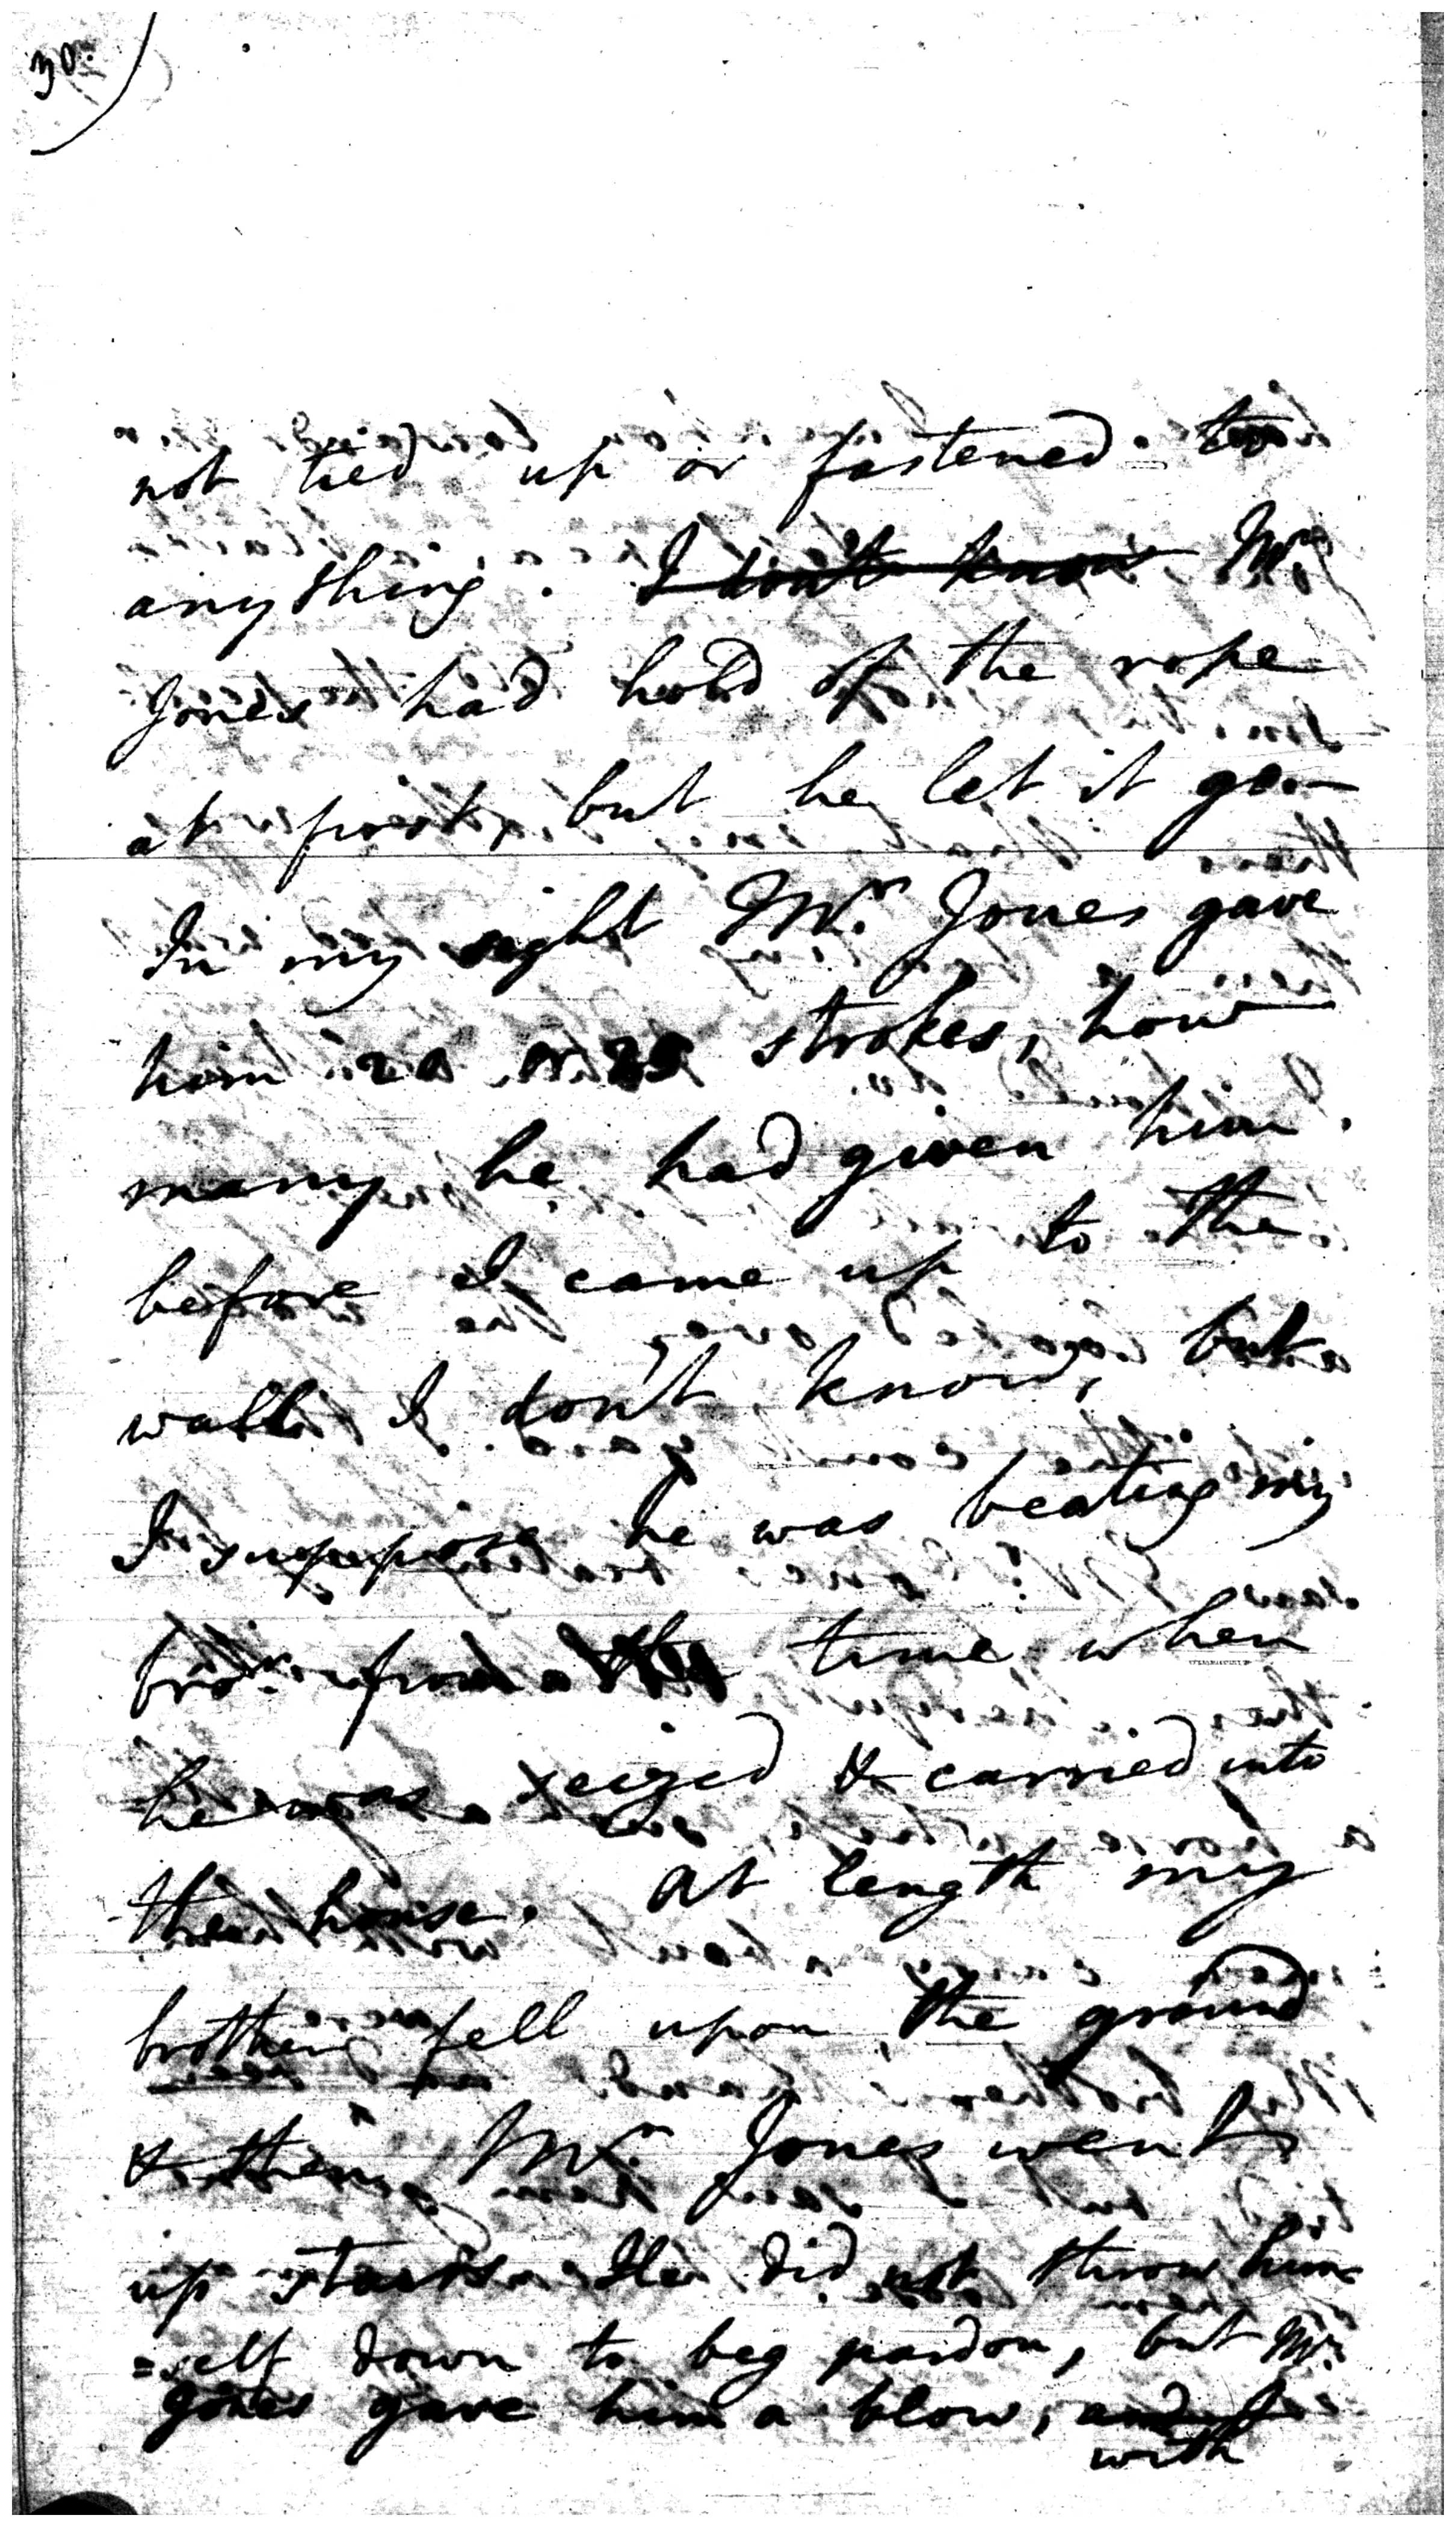 30.
not tied up or fastened to
anything. I don't know Mr.
Jones had hold of the rope
at first but he let it go—
In my sight Mr. Jones gave
him 20 or 25 strokes, how
many he had given him
before I came up to the
wall I don't know, but
I suppose he was beating my
bror. from the time when
he was seized & carried into
the house. At length my
brother fell upon the ground
& then Mr. Jones went
up stairs. He did not throw him
=self down to beg pardon, but Mr.
Jones gave him a blow,
with